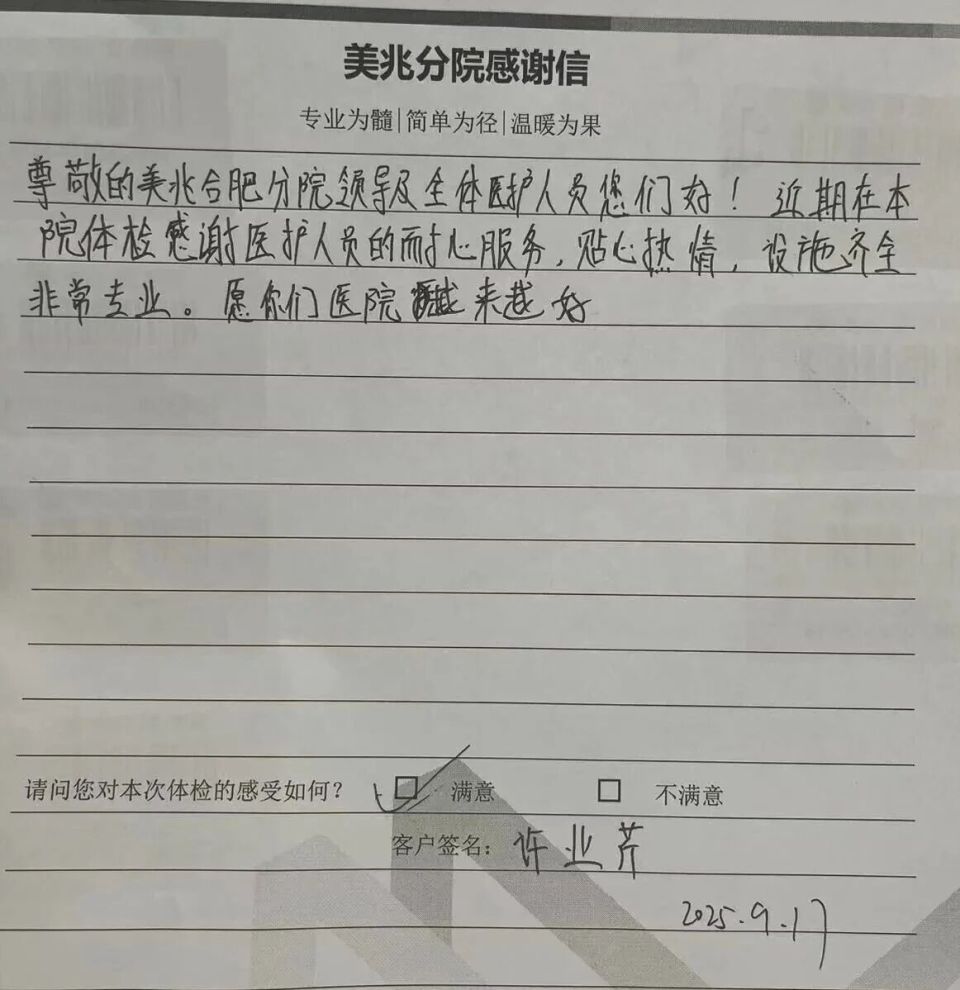 美兆分院感谢信
专业为髓|简单为径|温暖为果
尊敬的美兆合肥分院领导及全体医护人员您们好！近期在本
院体检感谢医护人员的耐心服务，贴心热情，设施齐全
非常专业。愿你们医院越来越好
请问您对本次体检的感受如何？ ☑ 满意 □ 不满意
客户签名：许业芹
2025.9.17